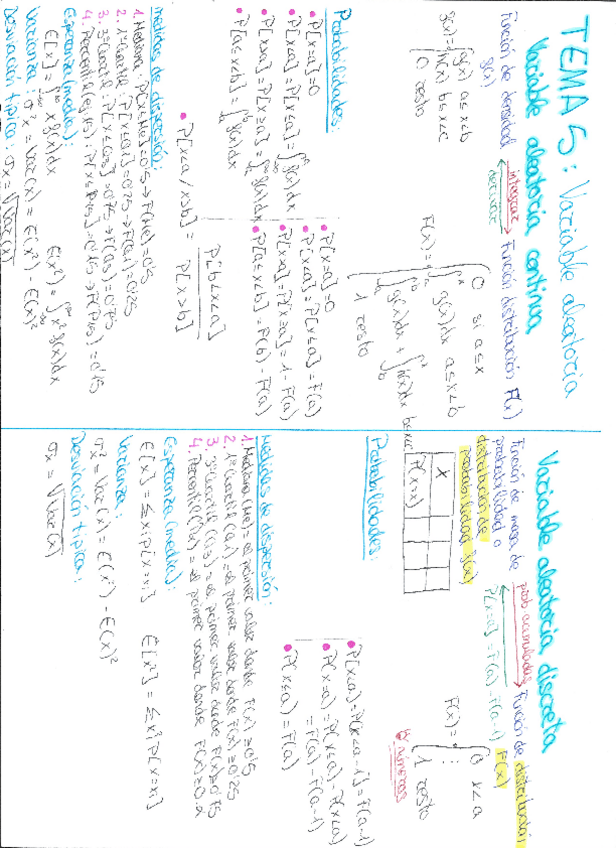 TEMA 5: Variable aleatoria
Variable aleatoria continua
Función de densidad
g(x)
integrar
derivar
Función distribución F(x)
g(x) = { g(x) a≤x<b
h(x) b≤x<c
0 resto
F(x) = { 0 si a≤x
∫ g(x)dx a≤x<b
∫ g(x)dx + ∫ h(x)dx b≤x<c
1 resto
Probabilidades:
• P[x=a]=0
• P[x<a] = P[x≤a] = ∫ g(x)dx
• P[x>a] = P[x≥a] = ∫ g(x)dx
• P[a≤x<b] = ∫ g(x)dx
• P[x=a]=0
• P[x<a] = P[x≤a] = F(a)
• P[x>a] = P[x≥a] = 1-F(a)
• P[a≤x<b] = F(b) - F(a)
• P[x<a / x>b] = P[b<x<a]
P[x>b]
Medidas de dispersión:
1. Mediana: P[x≤Me]=0'5 → F(Me)=0'5
2. 1ºCuartil: P[x≤Q1]=0'25 → F(Q1)=0'25
3. 3ºCuartil: P[x≤Q3]=0'75 → F(Q3)=0'75
4. Percentil (ej. P15): P[x≤P15]=0'15 → F(P15)=0'15
Esperanza (media):
E[x] = ∫ x g(x)dx E(x²) = ∫ x² g(x)dx
Varianza: σ²x = Var(x) = E(x²) - E(x)²
Desviación típica: σx = √Var(x)
Variable aleatoria discreta
Función de masa de
probabilidad o
distribución de
probabilidad f(x)
prob acumuladas
P[x=a] = F(a) - F(a-1)
Función de distribución
F(x)
x
P(x=x)
F(x) = { 0 x<a
⋮
1 resto
números
Probabilidades:
• P[x<a] = P[x≤a-1] = F(a-1)
• P(x=a) = P(x≤a) - P(x<a)
= F(a) - F(a-1)
• P(x≤a) = F(a)
Medidas de dispersión:
1. Mediana (Me) = el primer valor donde F(x) ≥ 0'5
2. 1ºCuartil (Q1) = el primer valor donde F(x) ≥ 0'25
3. 3ºCuartil (Q3) = el primer valor donde F(x) ≥ 0'75
4. Percentil = el primer valor donde F(x) ≥ 0.
Esperanza (media):
E[x] = Σ xi P[x=xi] E[x²] = Σ x² P[x=xi]
Varianza:
σ²x = Var(x) = E(x²) - E(x)²
Desviación típica:
σx = √Var(x)